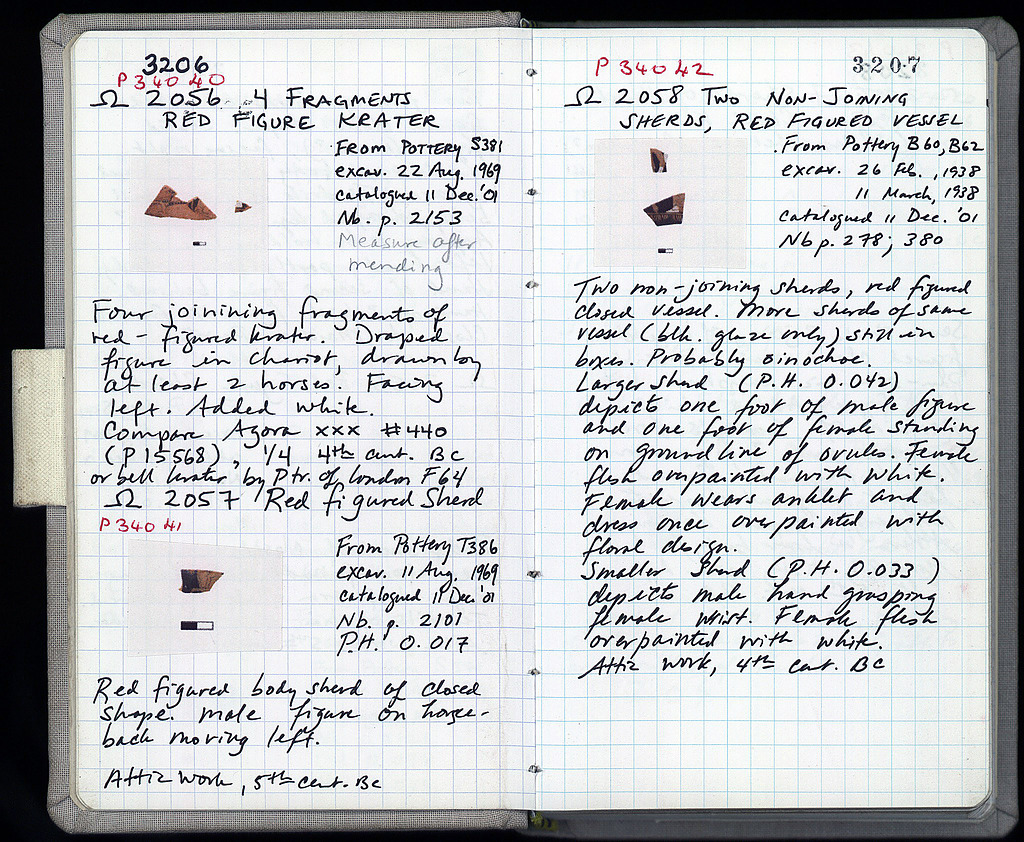 3206
P 34040
Ω 2056 4 FRAGMENTS
RED FIGURE KRATER
FROM POTTERY S381
excav. 22 Aug. 1969
catalogued 11 Dec. '01
Nb. p. 2153
Measure after
mending
Four joinining fragments of
red-figured krater. Draped
figure in chariot, drawn by
at least 2 horses. Facing
left. Added white.
Compare Agora XXX #440
(P15568), 1/4 4th cent. BC
or bell krater by Ptr. of London F64
Ω 2057 Red figured Sherd
P 34041
From Pottery T386
excav. 11 Aug. 1969
catalogued 11 Dec. '01
Nb. p. 2101
P.H. 0.017
Red figured body sherd of closed
shape. Male figure on horse-
back moving left.
Attic work, 5th cent. BC
P 34042
3207
Ω 2058 TWO NON-JOINING
SHERDS, RED FIGURED VESSEL
From Pottery B60, B62
excav. 26 Feb., 1938
11 March, 1938
catalogued 11 Dec. '01
Nb p. 278; 380
Two non-joining sherds, red figured
closed vessel. More sherds of same
vessel (blk. glaze only) still in
boxes. Probably oinochoe.
Larger Sherd (P.H. 0.042)
depicts one foot of male figure
and one foot of female standing
on groundline of ovules. Female
flesh overpainted with white.
Female wears anklet and
dress once overpainted with
floral design.
Smaller Sherd (P.H. 0.033)
depicts male hand grasping
female wrist. Female flesh
overpainted with white.
Attic work, 4th cent. BC